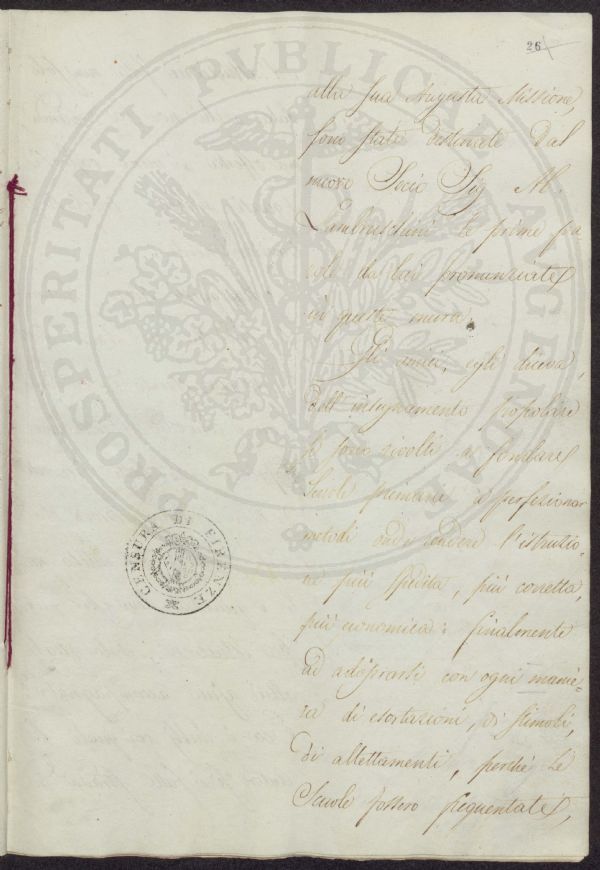 26
alla sua Augusta Missione,
sono state destinate dal
nuovo Socio Sig Ab.
Lambruschini le prime pa
role da lui pronunziate
in queste mura.
Gli amici, egli diceva,
dell'insegnamento popolare
si sono rivolti a fondare
Scuole primarie a perfezionar
metodi onde rendere l'istruzio-
ne più spedita, più corretta,
più economica: finalmente
ad adoprarsi con ogni manie-
ra di esortazioni, di stimoli,
di allettamenti, perchè le
Scuole fossero frequentate,
CENSURA DI FIRENZE
PROSPERITATI PUBLICAE AUGENDAE